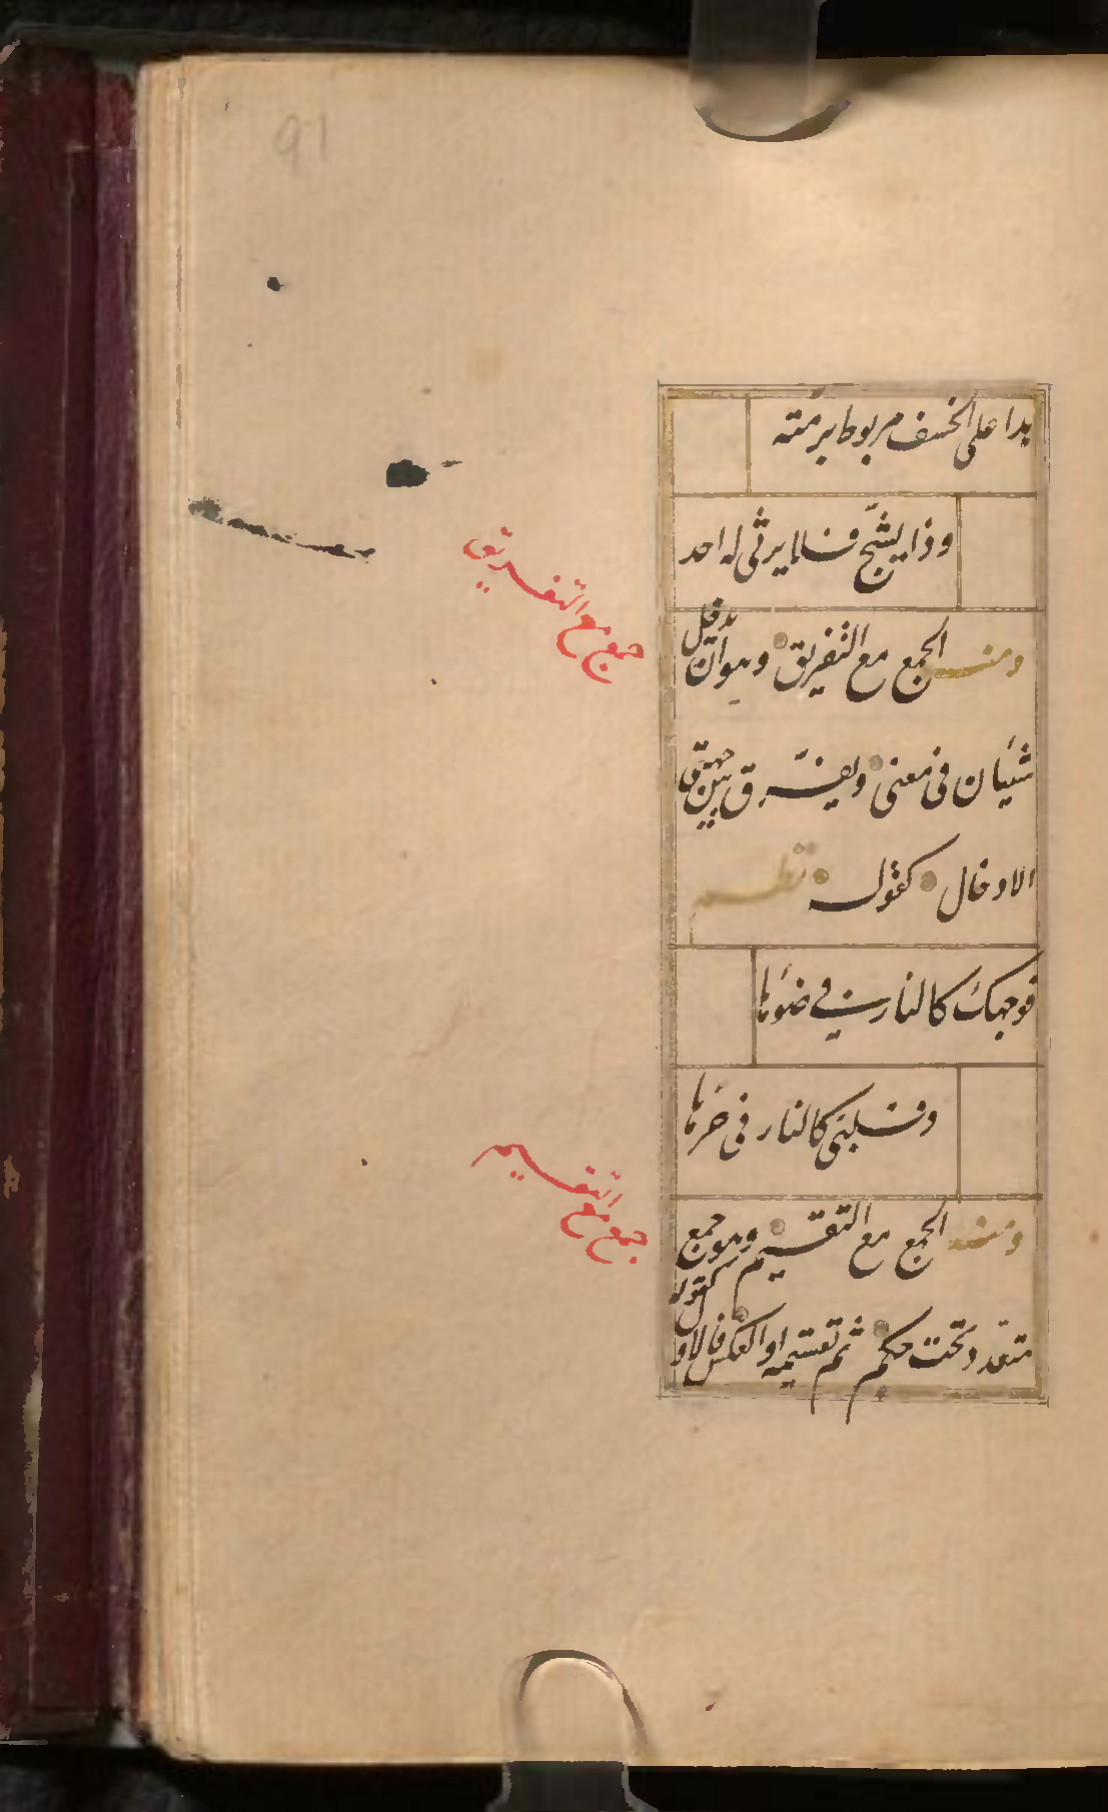 هذا على الخسف مربوط برمته
وذا يشج فلا يرثى له احد
ومنه الجمع مع التفريق وهو ان يدخل
شيئان فى معنى ويفرق بين جهتى
الادخال كقوله نظم
فوجهك كالنار فى ضوئها
وقلبى كالنار فى حرها
ومنه الجمع مع التقسيم وهو جمع
متعدد تحت حكم ثم تقسيمه او العكس فالاول كقوله
جمع مع التفريق
جمع مع التقسيم
91